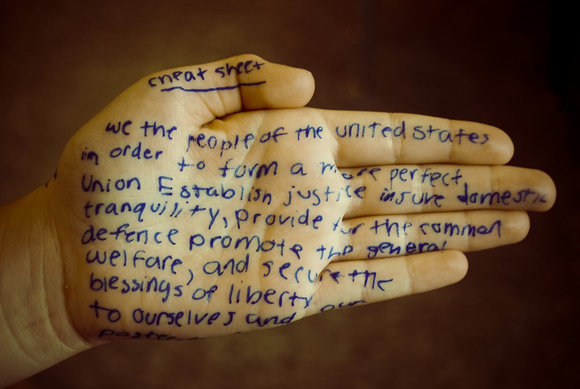 cheat sheet
we the people of the united states
in order to form a more perfect
Union Establish justice insure domestic
tranquility, provide for the common
defence promote the general
welfare, and secure the
blessings of liberty
to ourselves and our
posterity